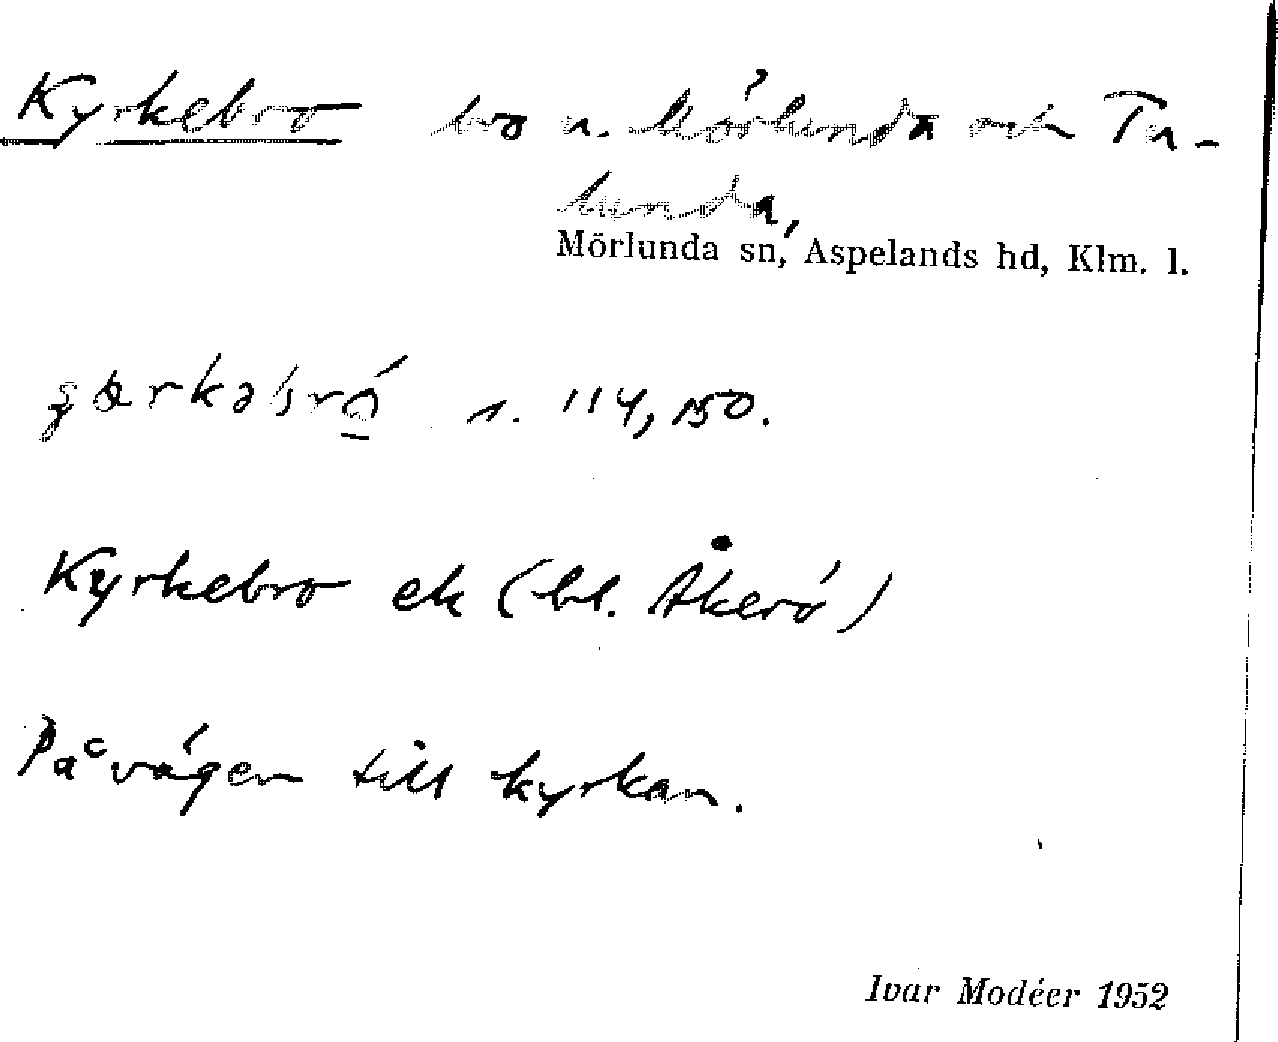 Kyrkebro bro n. Mörlunda och Tu-
lunda,
Mörlunda sn, Aspelands hd, Klm. l.
s. 114, 150.
Kyrkebro ek (bl. Åkerö)
På vägen till kyrkan.
Ivar Modéer 1952